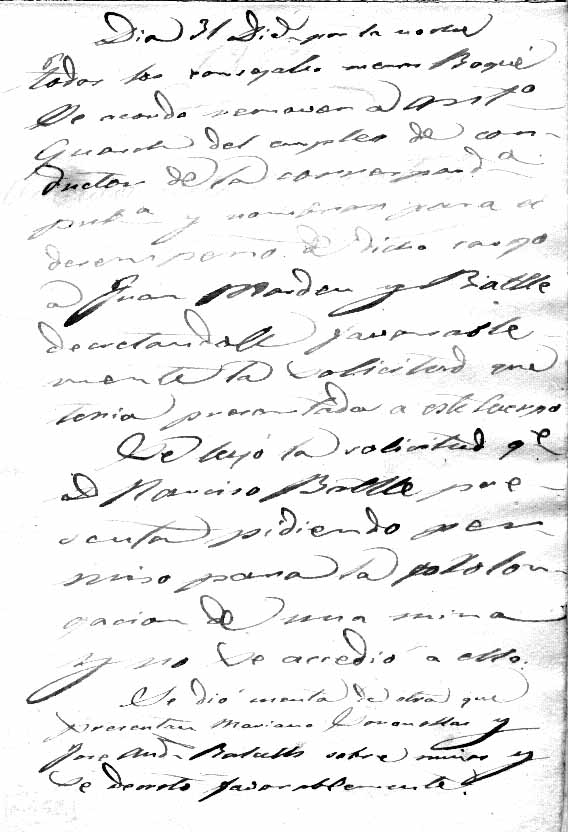 Dia 31 Dic.e por la noche
todos los concejales menos Boqué
Se acordó remover a Ant.o
Guasch del empleo de con-
ductor de la correspond.a
pub.a y nombrar para el
desempeño de dicho cargo
a Juan Mardeu y Batlle
decretandole favorable-
mente la solicitud que
tenia presentada a este Cuerpo
Se leyó la solicitud q.e
D Narciso Batlle pre-
senta pidiendo per-
miso para la prolon-
gacion de una mina
y no se accedió a ello.
Se dió cuenta de otra que
presentan Mariano y
José And. sobre minas y
se decretó favorablemente.